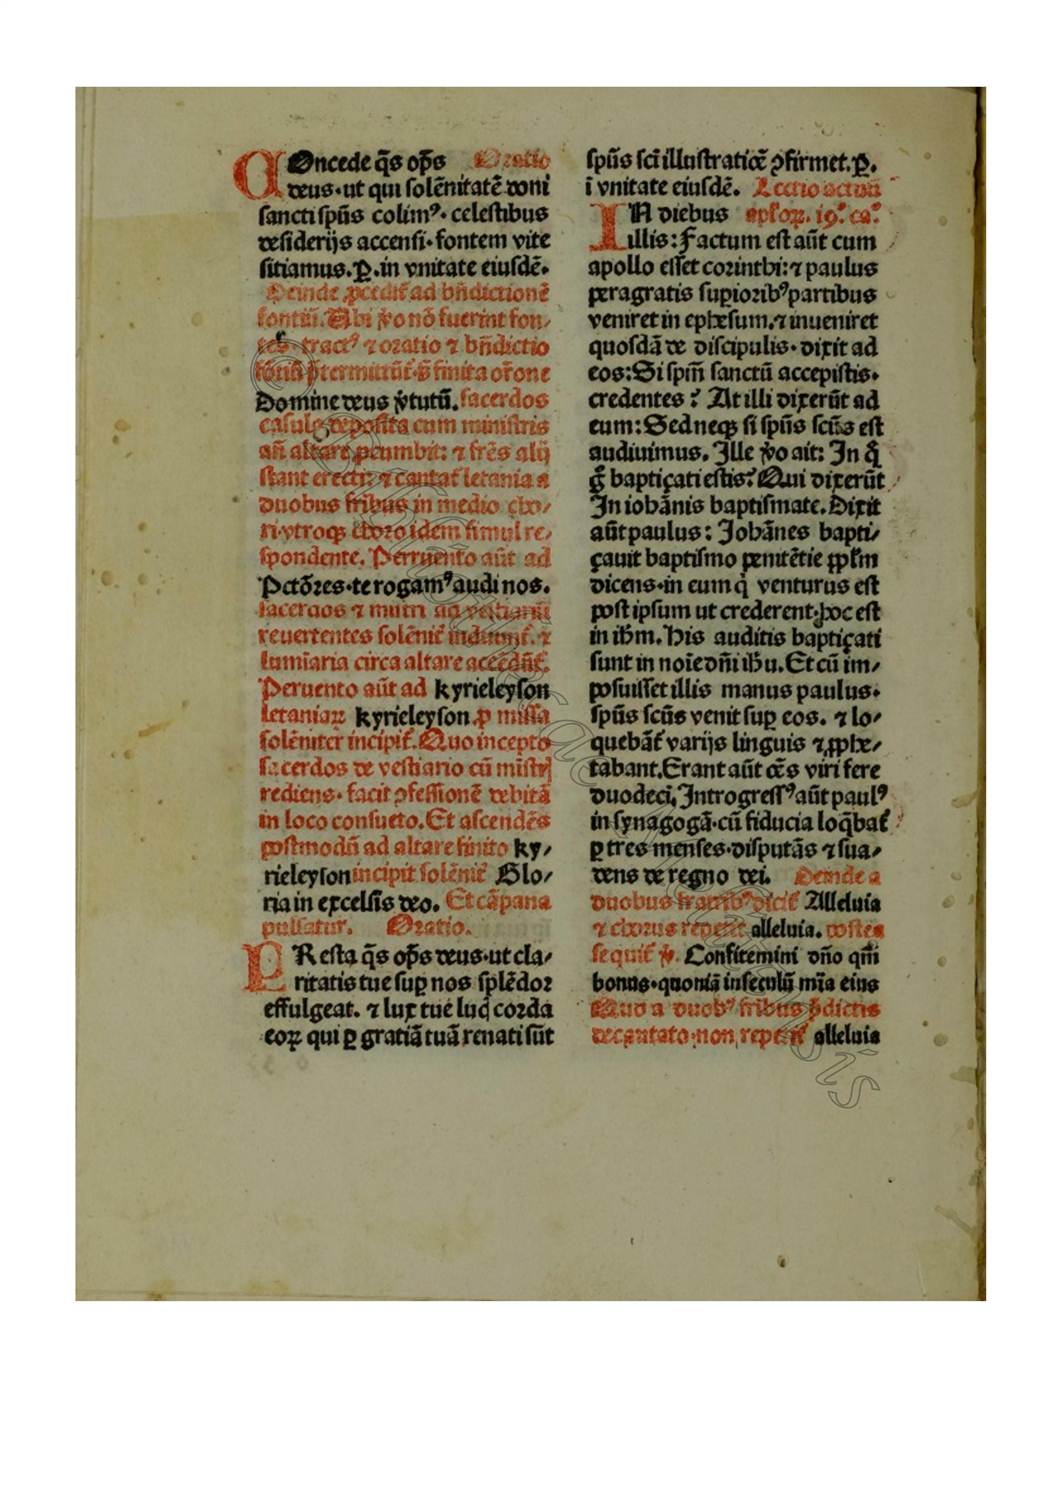 COncede q̄s op̄s Oratio
deus·ut qui solēnitatē doni
sancti sp̄us colimꝰ· celestibus
desiderijs accensi·fontem vite
sitiamus.P̱.in vnitate eiusdē·
Deinde ꝓcedit̄ ad bn̄dictionē
fontiū.Ubi ṽo nō fuerint fon/
tes tractꝰ ⁊ oratio ⁊ bn̄dictio
fōtiū p̄termittūt̄·⁊ finita or̄one
Domine deus ṽtutū.sacerdos
casula deposita cum ministris
an̄ altare ꝓcumbit: ⁊ fr̄es alij
stant erecti: ⁊ cantat̄ letania a
duobus fribus in medio cho/
ri·vtroqꝫ choro idem simul re/
spondente. Peruento aūt ad
Pctōres·te rogamꝰ audi nos.
sacerdos ⁊ mistri ad vestiariū
reuertentes solēnit̄ induunt̄. ⁊
lumīaria circa altare accēdūt̄.
Peruento aūt ad kyrieleyson
letaniaꝝ kyrieleyson.ꝓ missa
solēniter incipit̄.Quo incepto
sacerdos de vestiario cū mistrꝭ
rediens· facit ꝯfessionē debitā
in loco consueto.Et ascendēs
postmodū ad altare finito ky/
rieleyson incipit solēnit̄ Glo/
ria in excelsis deo. Et cāpana
pulsatur. Oratio.
PResta q̄s op̄s deus·ut cla/
ritatis tue sup̱ nos splēdor
effulgeat. ⁊ lux tue lucꝭ corda
eoꝝ qui ꝑ gratiā tuā renati sūt
sp̄us sc̄i illustratiōe ꝯfirmet.P̱.
ī vnitate eiusdē. Lectio actuū
IN diebus apl'oꝝ. 19.° ca.°
illis: Factum est aūt cum
apollo esset corinthi:⁊ paulus
peragratis suꝑioribꝰ partibus
veniret in ephesum.⁊ inueniret
quosdā de discipulis· dixit ad
eos:Si sp̄m sanctū accepistis·
credentes ? At illi dixerūt ad
eum: Sed neqꝫ si sp̄us scūs est
audiuimus. Ille ṽo ait: In q̄
g̊ baptiçati estis? Qui dixerūt
In iohānis baptismate.Dixit
aūt paulus: Iohānes bapti/
çauit baptismo penitētie ppl'm
dicens·in eum q̇ venturus est
post ipsum ut crederent·hoc est
in ih̄m. His auditis baptiçati
sunt in noīe dn̄i ih̄u.Et cū im/
posuisset illis manus paulus·
sp̄us scūs venit suꝑ eos. ⁊ lo/
quebāt̄ varijs linguis ⁊ ꝓphe/
tabant.Erant aūt oēs viri fere
duodecī.Introgressꝰ aūt paulꝰ
in synagogā·cū fiducia loq̄bat̄
ꝑ tres menses·disputās ⁊ sua/
dens de regno dei. Deinde a
duobus fratribꝰ dicit̄ Alleluia
⁊ chorus repetit alleluia. postea
sequit̄ ℣. Confitemini dn̄o qm̄
bonus·quoniā in seculū mīa eius
Quo a duobꝰ fribus p̄dictis
decantato·non repetit̄ alleluia